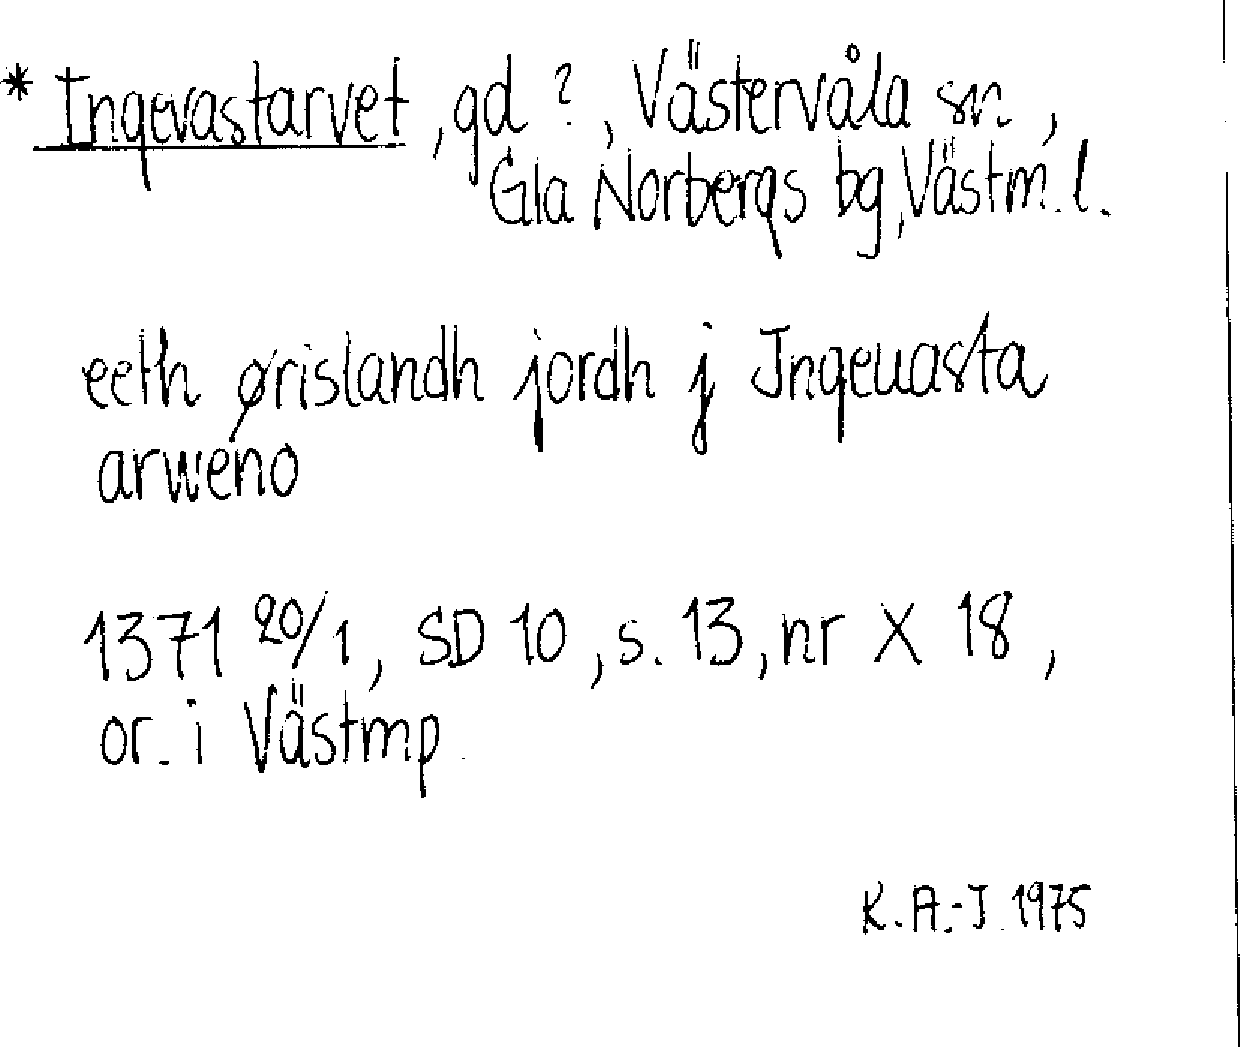 * Ingevastarvet, gd ?, Västervåla sn,
Gla Norbergs bg, Västm. l.
eeth ørislandh jordh j Jngeuasta
arweno
1371 20/1, SD 10, s. 13, nr X 18,
or. i Västmp.
K. A.-J. 1975